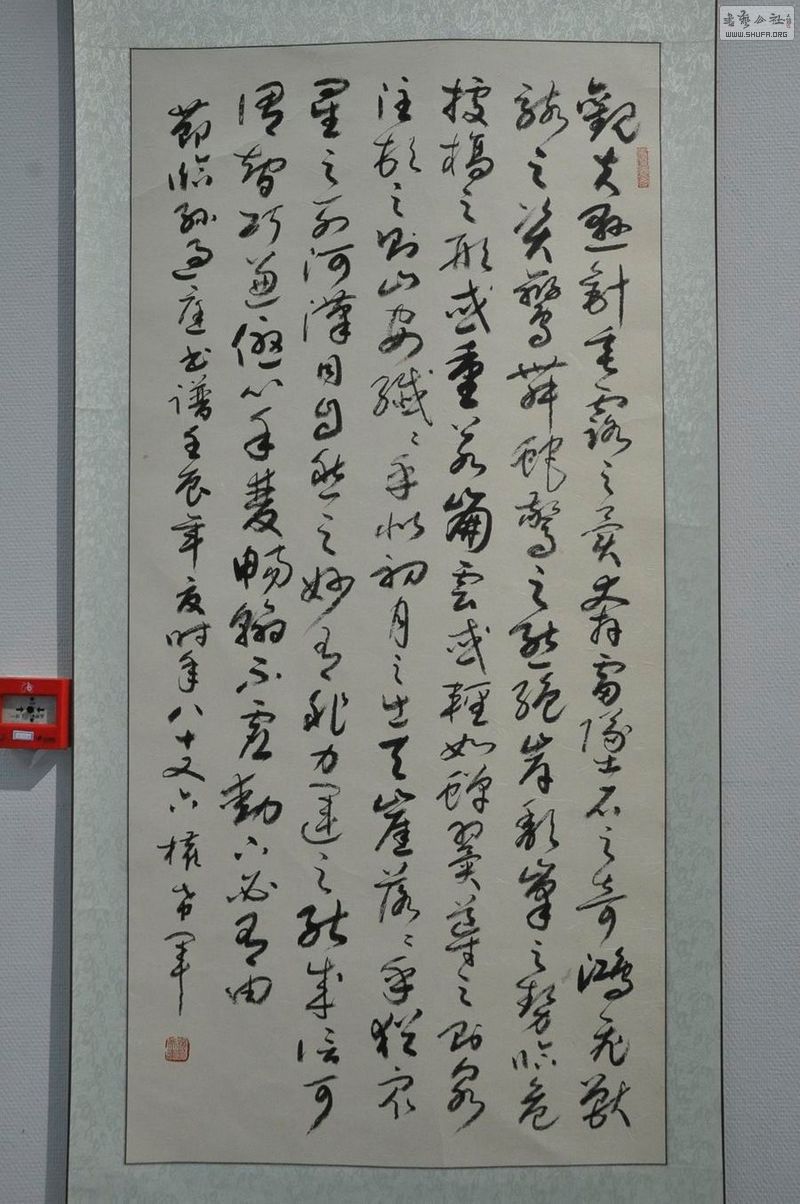 觀夫懸針垂露之異奔雷墜石之奇鴻飛獸
駭之資鸞舞蛇驚之態絕岸頹峯之勢臨危
據槁之形或重若崩雲或輕如蟬翼導之則泉
注頓之則山安纖〻乎似初月之出天崖落〻乎猶衆
星之列河漢同自然之妙有非力運之能成信可
謂智巧兼優心手雙暢翰不虛動下必有由
節臨孫過庭書譜壬辰年夏時年八十又六權希軍
書藝公社
WWW.SHUFA.ORG